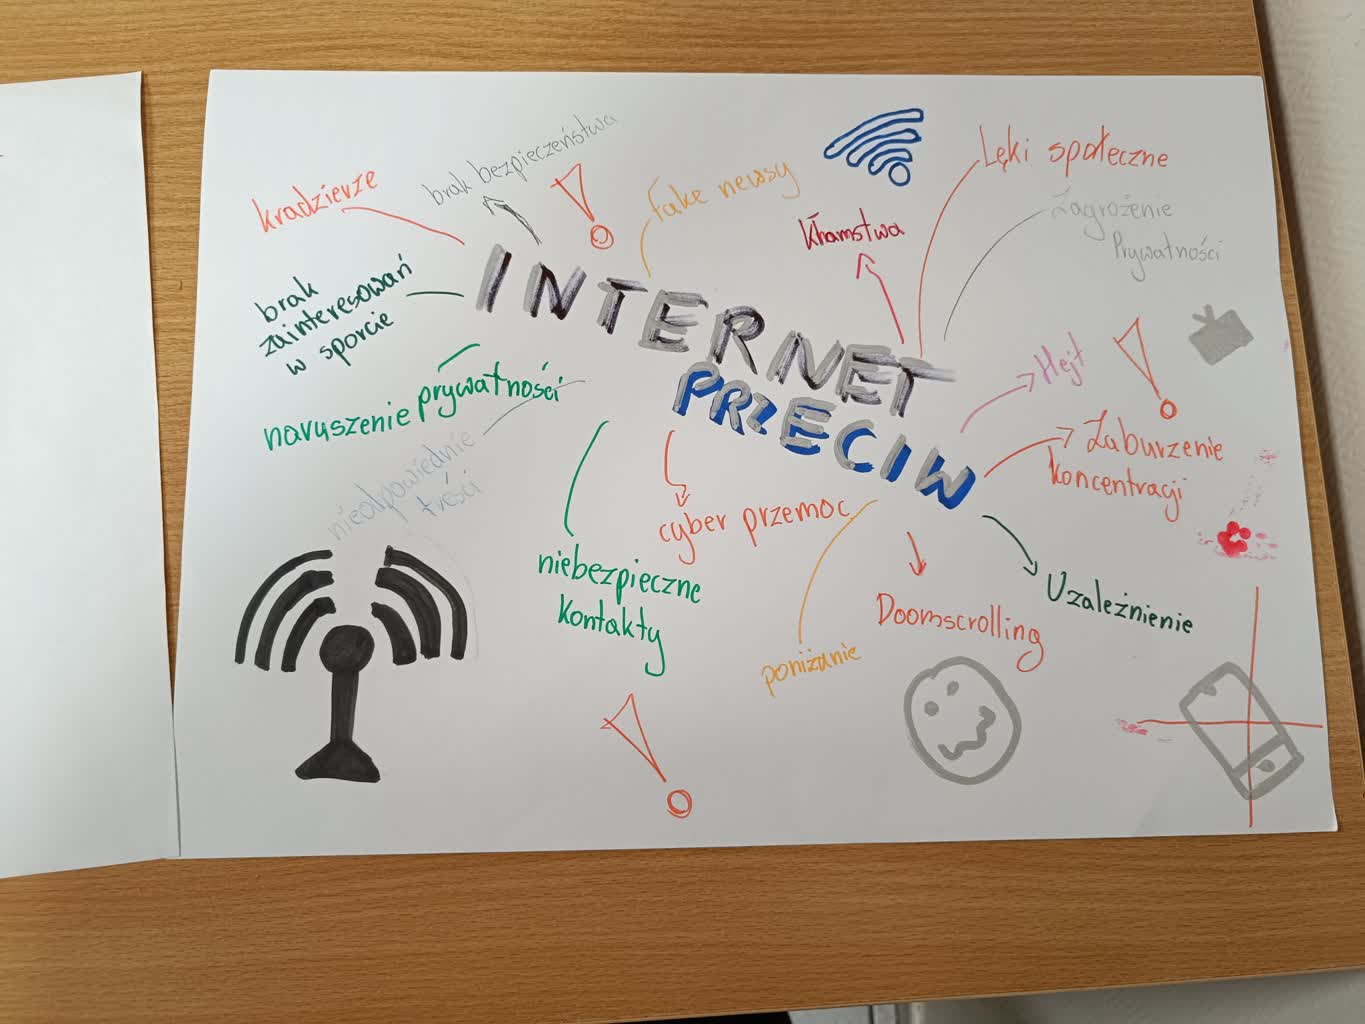 kradzierze
brak bezpieczeństwa
fake newsy
Kłamstwa
Lęki społeczne
Zagrożenie
Prywatności
brak
zainteresowań
w sporcie
INTERNET
PRZECIW
Hejt
naruszenie prywatności
Zaburzenie
koncentracji
nieodpowiednie
treści
cyber przemoc
niebezpieczne
kontakty
Uzależnienie
Doomscrolling
poniżanie